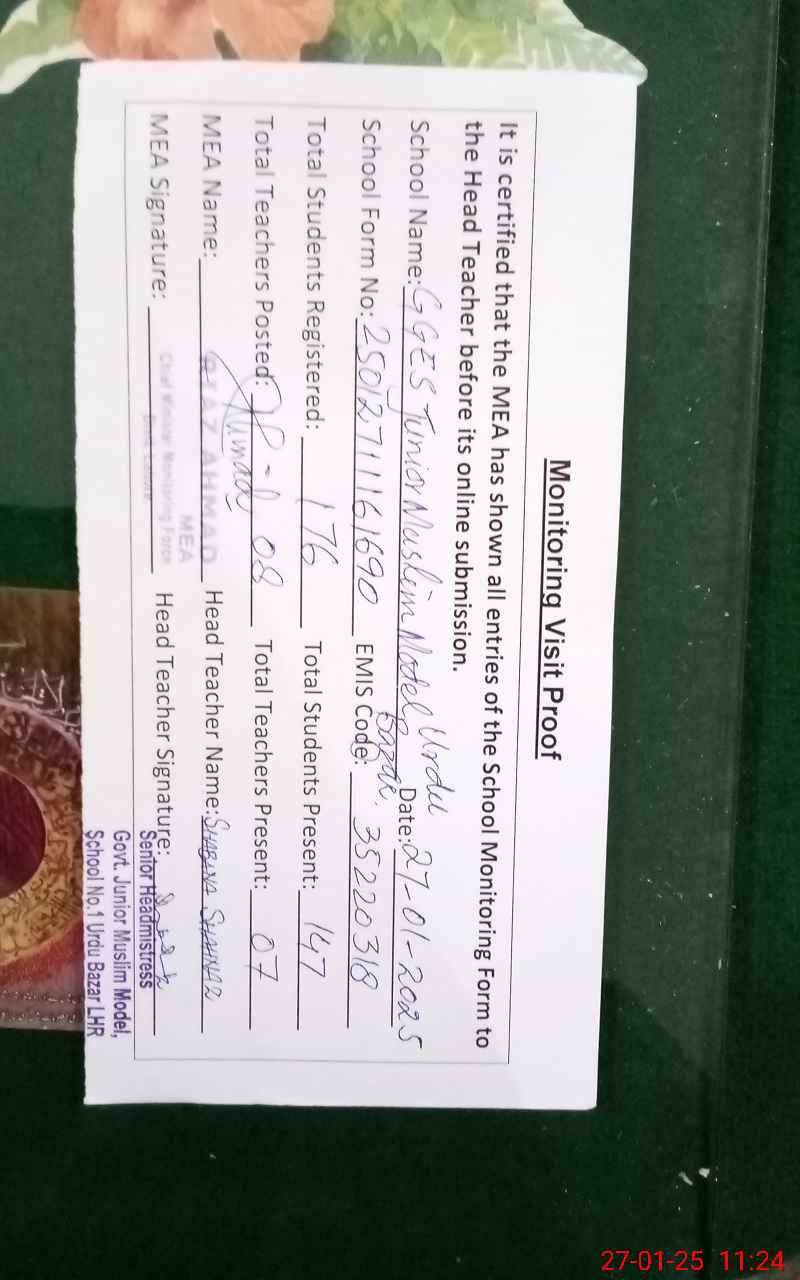 Monitoring Visit Proof
It is certified that the MEA has shown all entries of the School Monitoring Form to
the Head Teacher before its online submission.
School Name: GGES Junior Muslim Model Urdu Bazar. Date: 27-01-2025
School Form No: 250127111161690 EMIS Code: 35220318
Total Students Registered: 176 Total Students Present: 147
Total Teachers Posted: 08 Total Teachers Present: 07
MEA Name: AHMAD Head Teacher Name: SHABINA SHAHNAZ
MEA
MEA Signature: Head Teacher Signature:
Chief Minister Monitoring Force
Distt. Lahore
Senior Headmistress
Govt. Junior Muslim Model,
School No.1 Urdu Bazar LHR
27-01-25 11:24